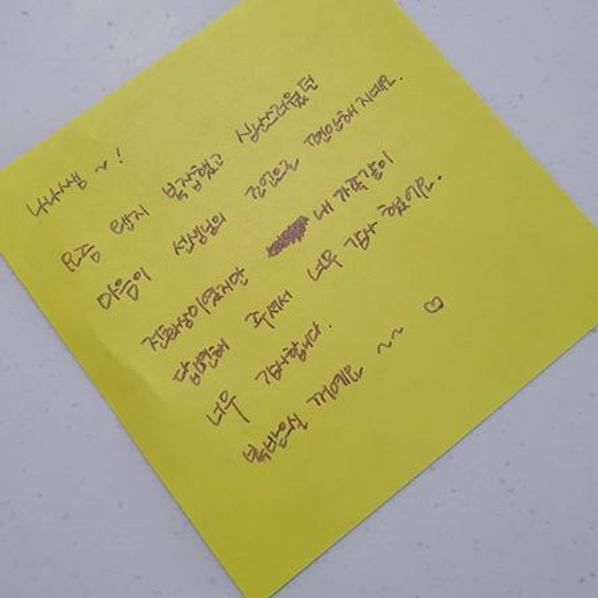 나나쌤 ~ !
요즘 왠지 복잡했고 심난스러웠던
마음이 선생님의 조언으로 편안해 지네요.
전화상이였지만 내 가족같이
답변해 주셔서 너무 감사 했어요.
너무 감사합니다.
복받으실 거예요 ~~ ♡